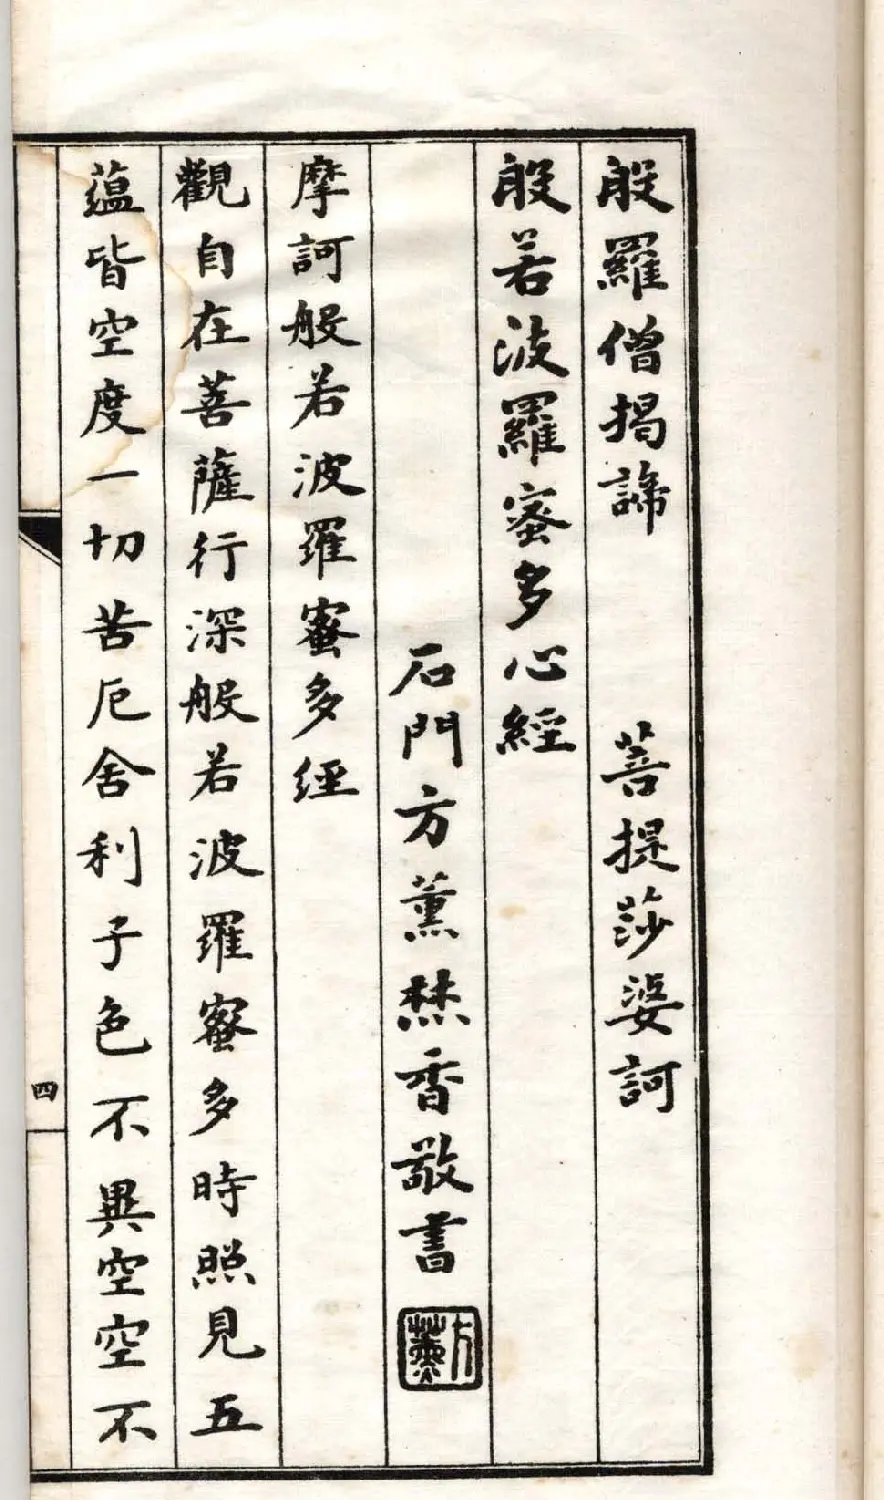 般羅僧揭諦 菩提莎婆訶
般若波羅蜜多心經
石門方薰焚香敬書
方薰
摩訶般若波羅蜜多經
觀自在菩薩行深般若波羅蜜多時照見五
蘊皆空度一切苦厄舍利子色不異空空不
四